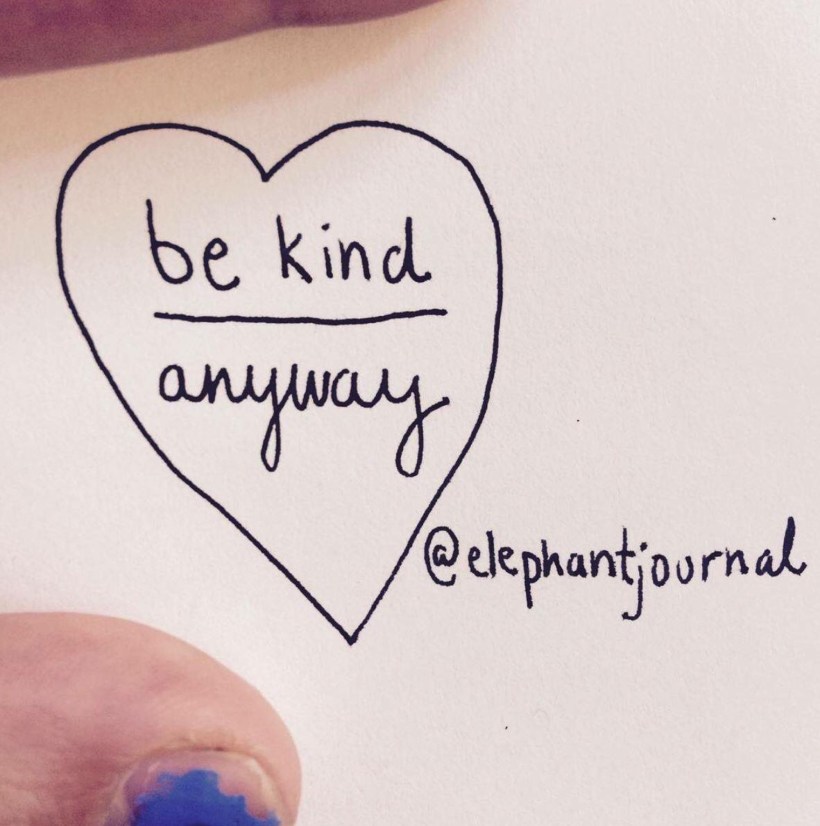 be kind
anyway
@elephantjournal